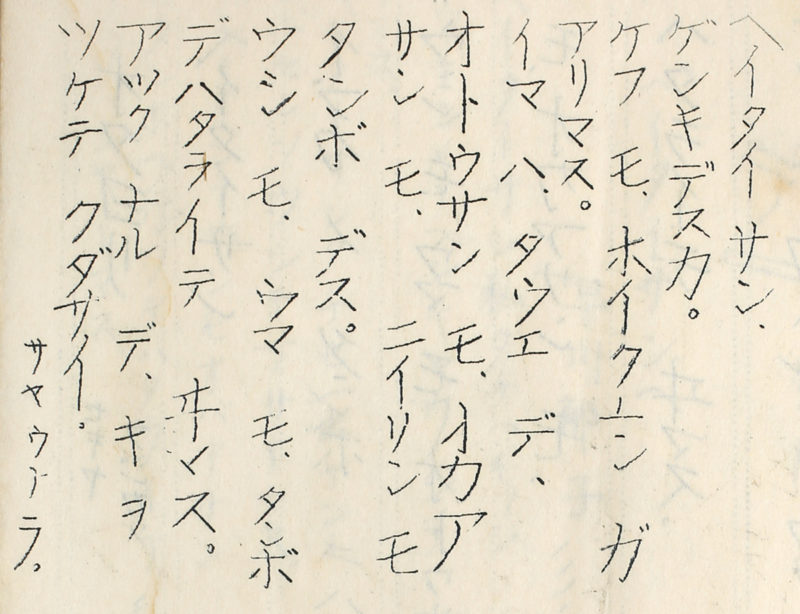 ヘイタイサン、
ゲンキデスカ。
ケフ モ、ホイクエン ガ
アリマス。
イマ ハ、タウエ デ、
オトウサン モ、イカア
サン モ、ニイリン モ
タンボ デス。
ウシ モ、ウマ モ、タンボ
デハタライテ ヰマス。
アツク ナル デ、キヲ
ツケテ クダサイ。
サヤウナラ。